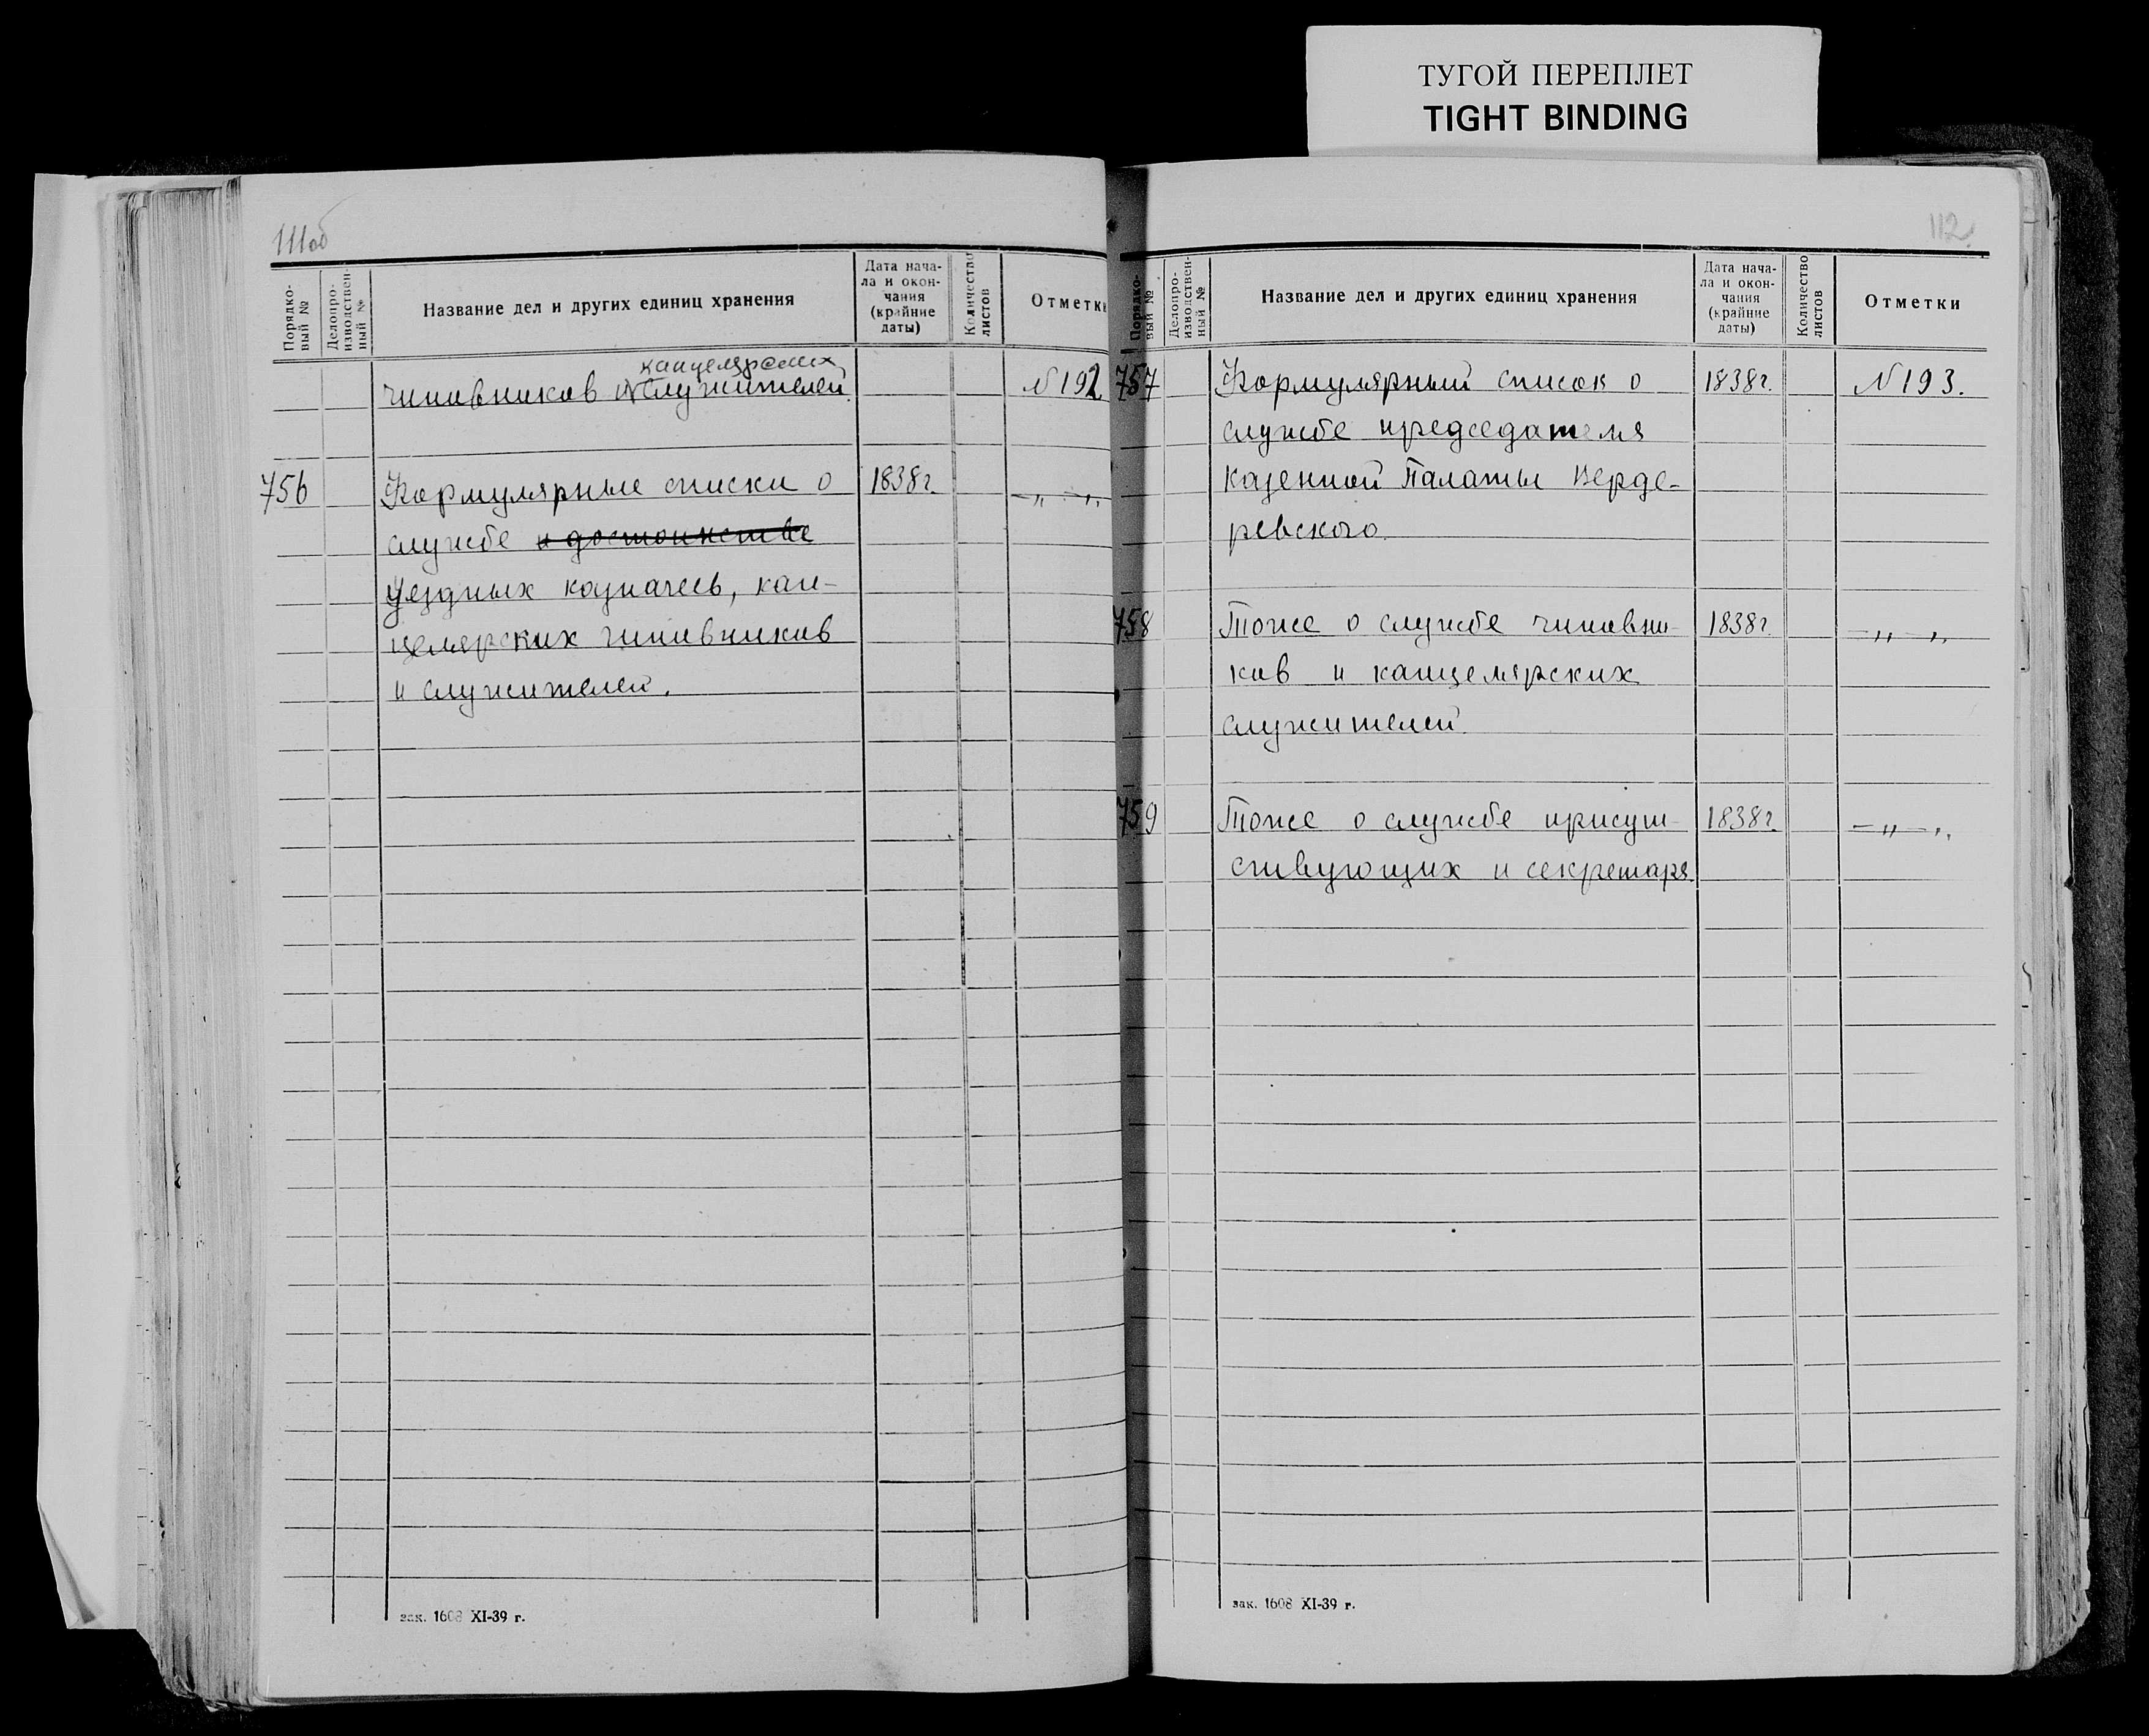 ТУГОЙ ПЕРЕПЛЕТ
TIGHT BINDING
111об
Порядко-
вый №
Делопро-
изводствен-
ный №
Название дел и других единиц хранения
Дата нача-
ла и окон-
чания
(крайние
даты)
Количество
листов
Отметки
канцелярских
чиновников и служителей. №192
756 Формулярные списки о 1838г. —„—„
службе и достоинстве
уездных казначеев, кан-
целярских чиновников
и служителей.
зак. 1608 XI-39 г.
112
Порядко-
вый №
Делопро-
изводствен-
ный №
Название дел и других единиц хранения
Дата нача-
ла и окон-
чания
(крайние
даты)
Количество
листов
Отметки
757 Формулярный список о 1838г. №193.
службе председателя
Казенной Палаты Верде-
ревского.
758 Тоже о службе чиновни- 1838г. —„—„
ков и канцелярских
служителей.
759 Тоже о службе присут- 1838г. —„—„
ствующих и секретаря.
зак. 1608 XI-39 г.